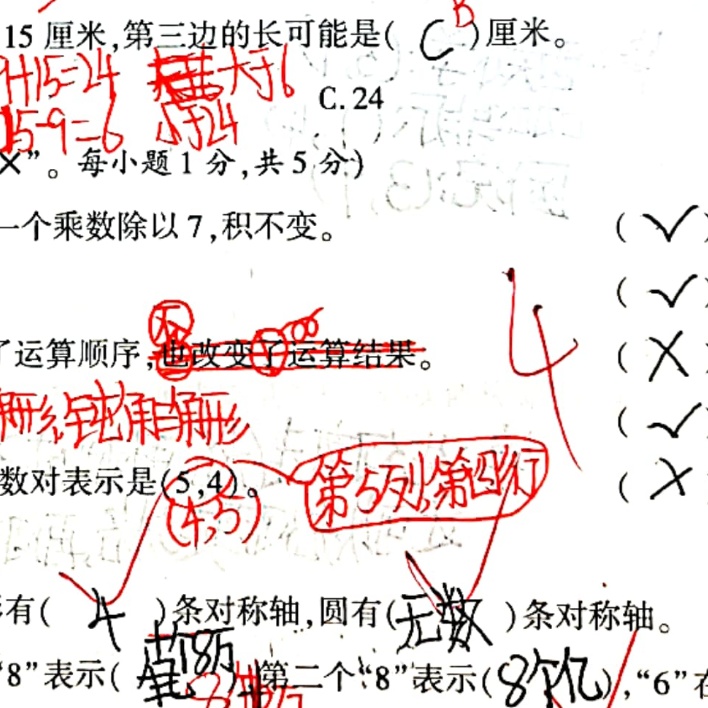 B
15厘米,第三边的长可能是( C )厘米。
9+15=24 大于6
C.24
15-9=6 小于24
×”。每小题1分,共5分)
一个乘数除以7,积不变。 ( ✓
4
( ✓
不
了运算顺序,也改变了运算结果。 ( ×
角形,钝角三角形 ( ✓
数对表示是(5,4)。 第5列,第四行 ( ×
(4,5)
有( 4 )条对称轴,圆有( 无数 )条对称轴。
“8”表示( 8万 ),第二个“8”表示( 8个亿 ),“6”在